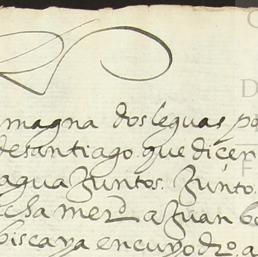 magna dos leguas po
de santiago que dicen
agua Juntos. Junto
cha merd a Juan b
biscaya en cuyo dro. a